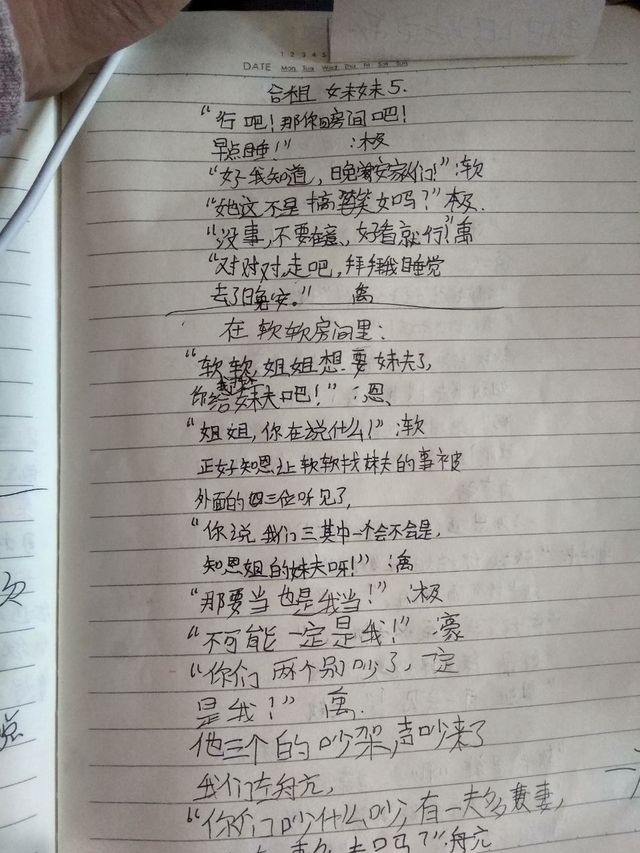 DATE
1 2 3 4 5
Mon Tue Wed Thu Fri Sat Sun
合租 妹妹5.
“行吧！那你回房间吧！
早点睡！” :极
“好我知道，晚安家人们！” :软
“她这不是搞笑女吗？” 极.
“没事，不要在意、好看就行” 禹
“对对对，走吧，拜拜我睡觉
去了晚安。” 禹
在软软房间里：
“软软，姐姐想要妹夫了，
你给 妹夫吧！” :恩、
“姐姐，你在说什么！” :软
正好知恩让软软找妹夫的事被
外面的 三位听见了，
“你说我们三其中一个会不会是，
知恩姐的妹夫呀！” :禹
“那要当也是我当！” :极
“不可能一定是我！” :豪
“你们两个别吵了，一定
是我！” 禹.
他三个的吵架，声吵来了
我们左舟亢，
“你们吵什么吵，有一夫多妻，
吗？” :舟亢